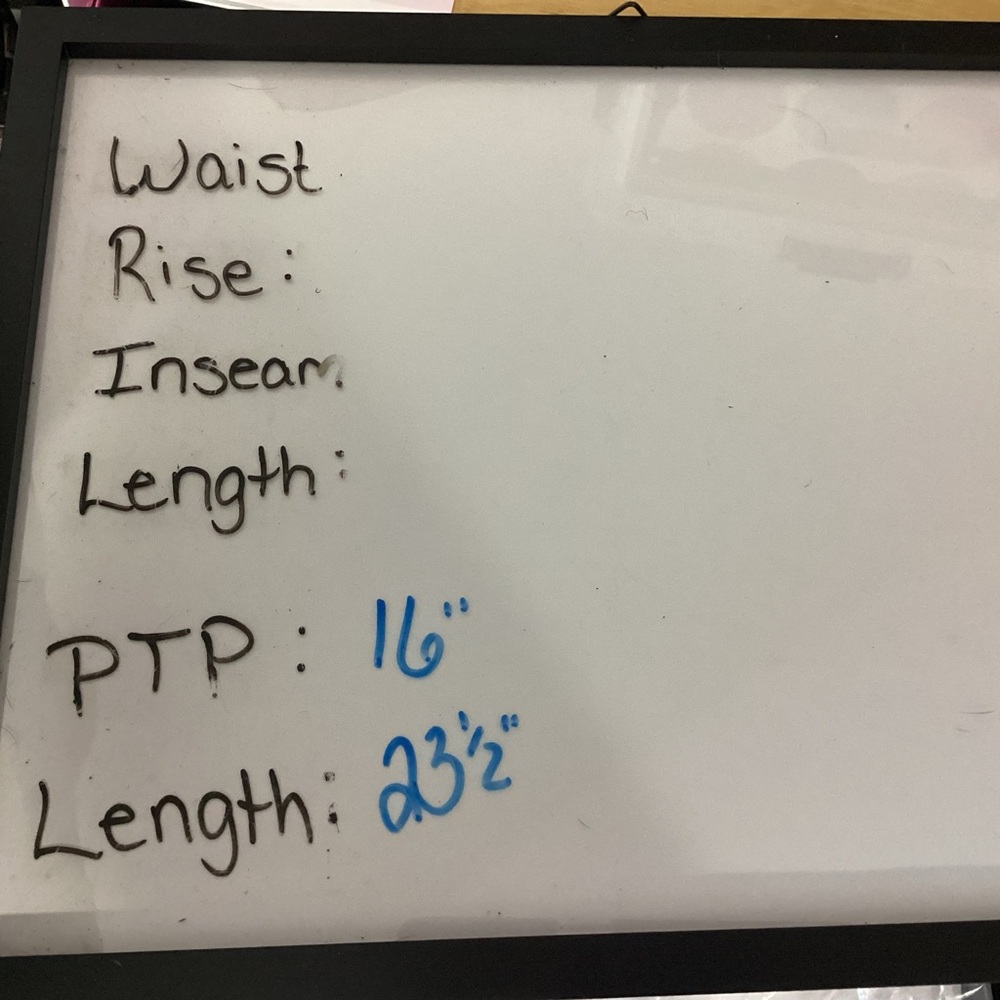 Waist
Rise:
Inseam
Length:
PTP: 16"
Length: 23 1/2"